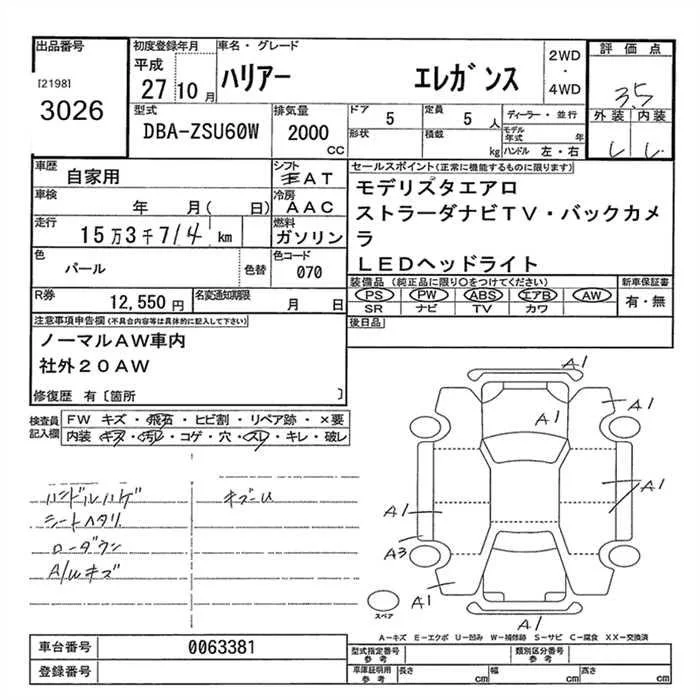 出品番号
[2198]
3026
初度登録年月
平成
27 10 月
車名・グレード
ハリアー エレガンス
2WD
・
4WD
評価点
3.5
外装 内装
型式
DBA-ZSU60W
排気量
2000
CC
ドア
5
形状
定員
5 人
積載
kg
ディーラー・並行
モデル年式 年
ハンドル 左・右
車歴
自家用
シフト
AT
車検
年 月( 日)
冷房
AAC
走行
15万3千714 km
燃料
ガソリン
色
パール
色替
色コード
070
R券
12,550 円
名変通知期限
月 日
セールスポイント(正常に機能するものに限ります)
モデリスタエアロ
ストラーダナビTV・バックカメ
ラ
LEDヘッドライト
装備品 (純正品に限り○をつけてください)
PS PW ABS エアB AW
SR ナビ TV カワ
新車保証書
有・無
後日品
注意事項申告欄(不具合内容等は具体的に記入して下さい)
ノーマルAW車内
社外20AW
修復歴 有〔箇所 〕
検査員
記入欄
FW キズ・飛石・ヒビ割・リペア跡・×要
内装 キズ・汚レ・コゲ・穴・スレ・キレ・破レ
ハンドルハゲ
シートヘタリ
ローダウン
A/Wキズ
キズーU
A1
A1
A1
A1
A1
A3
A1
A1
スペア
A-キズ E-エクボ U-凹み W-補修跡 S-サビ C-腐食 XX-交換済
車台番号
0063381
登録番号
型式指定番号
参考
類別区分番号
参考
車庫証明用
参考
長さ cm
幅 cm
高さ cm